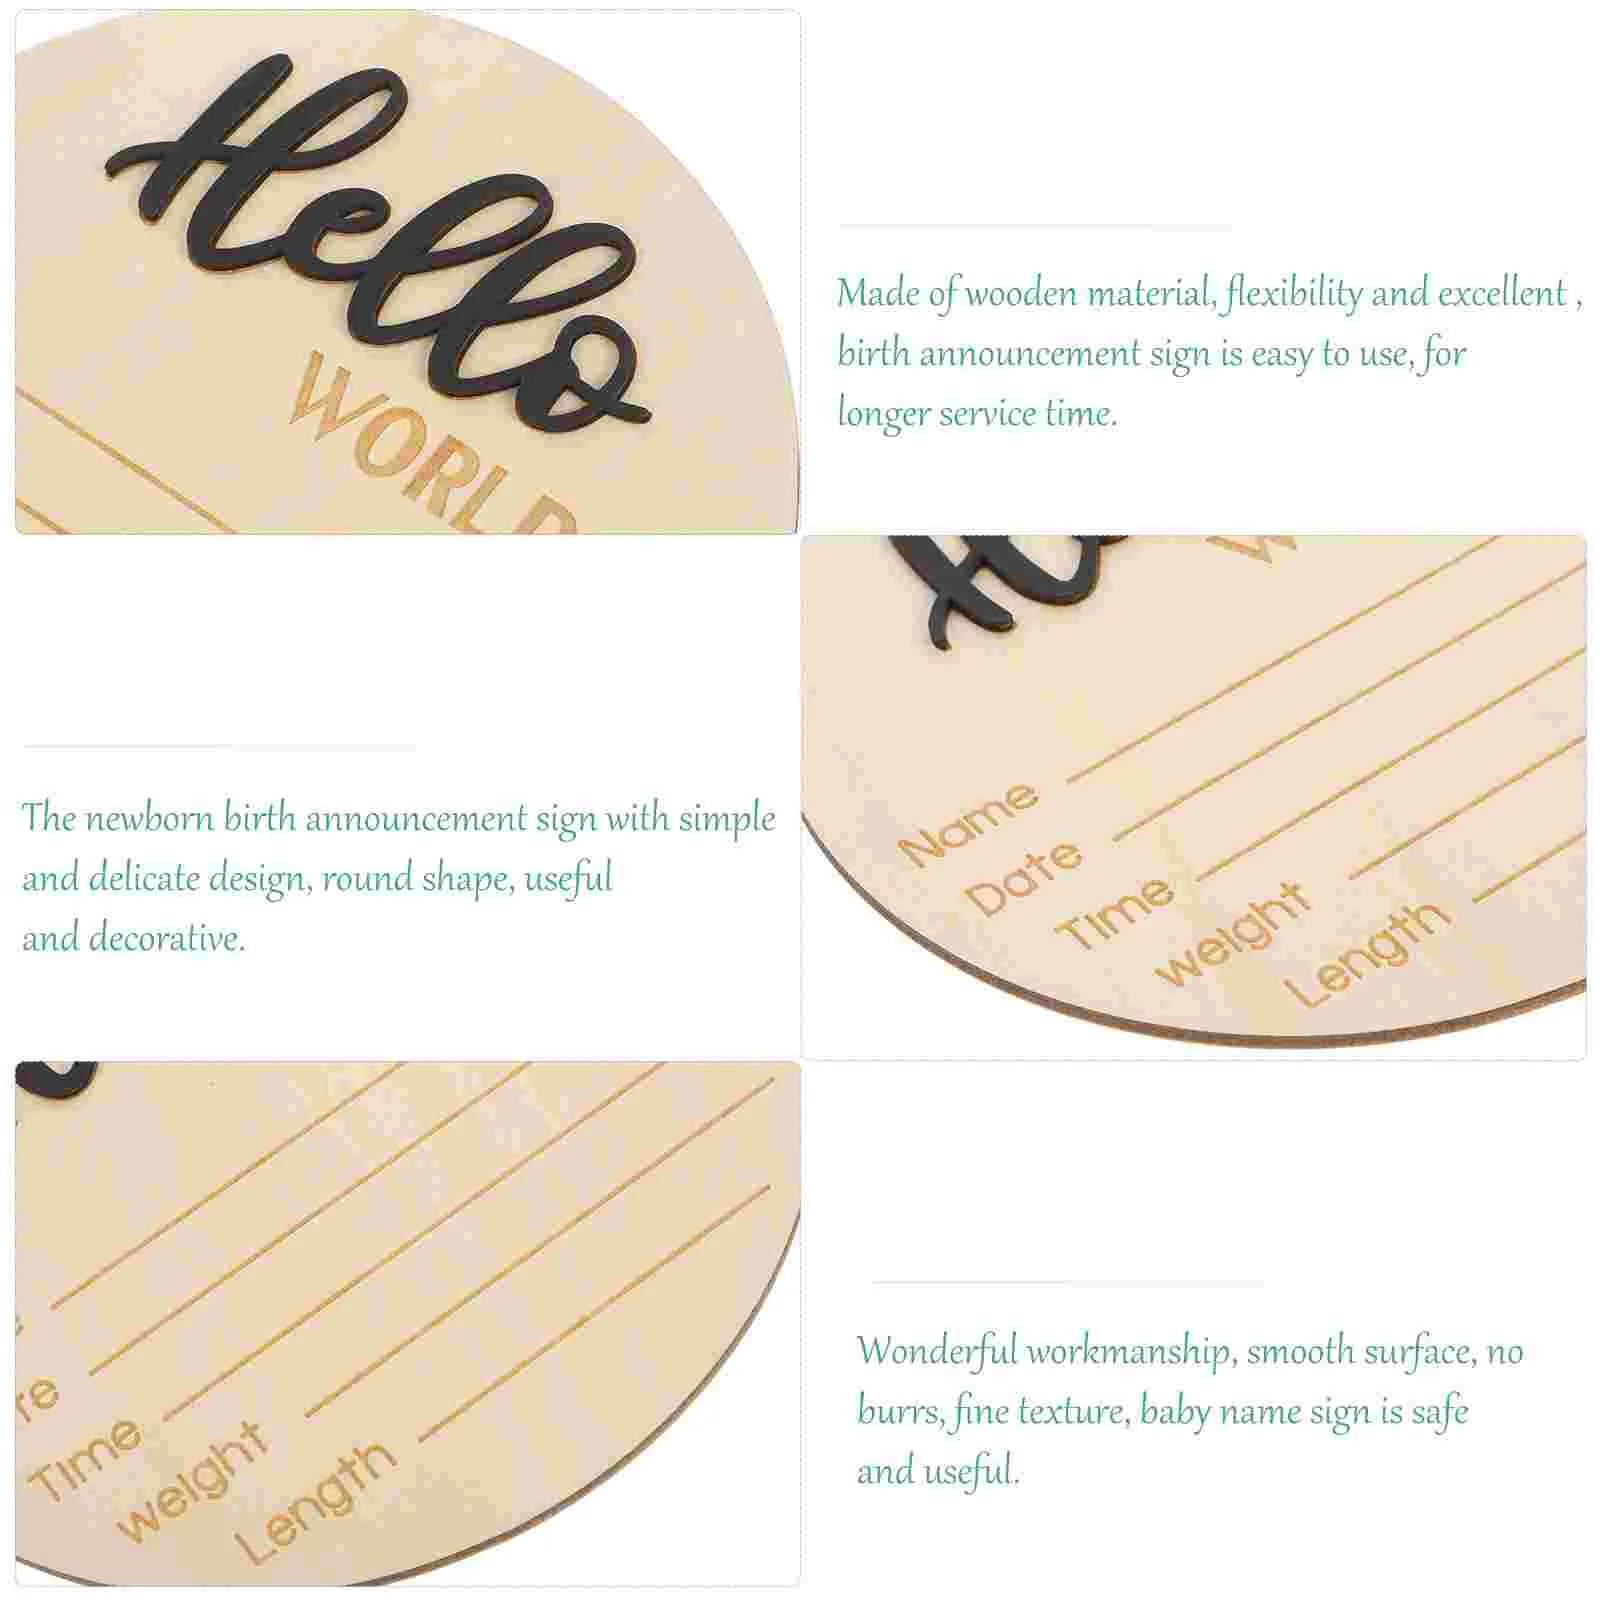 Hello
WORLD
Made of wooden material, flexibility and excellent ,
birth announcement sign is easy to use, for
longer service time.
Name
Date
Time
weight
Length
The newborn birth announcement sign with simple
and delicate design, round shape, useful
and decorative.
Time
weight
Length
Wonderful workmanship, smooth surface, no
burrs, fine texture, baby name sign is safe
and useful.